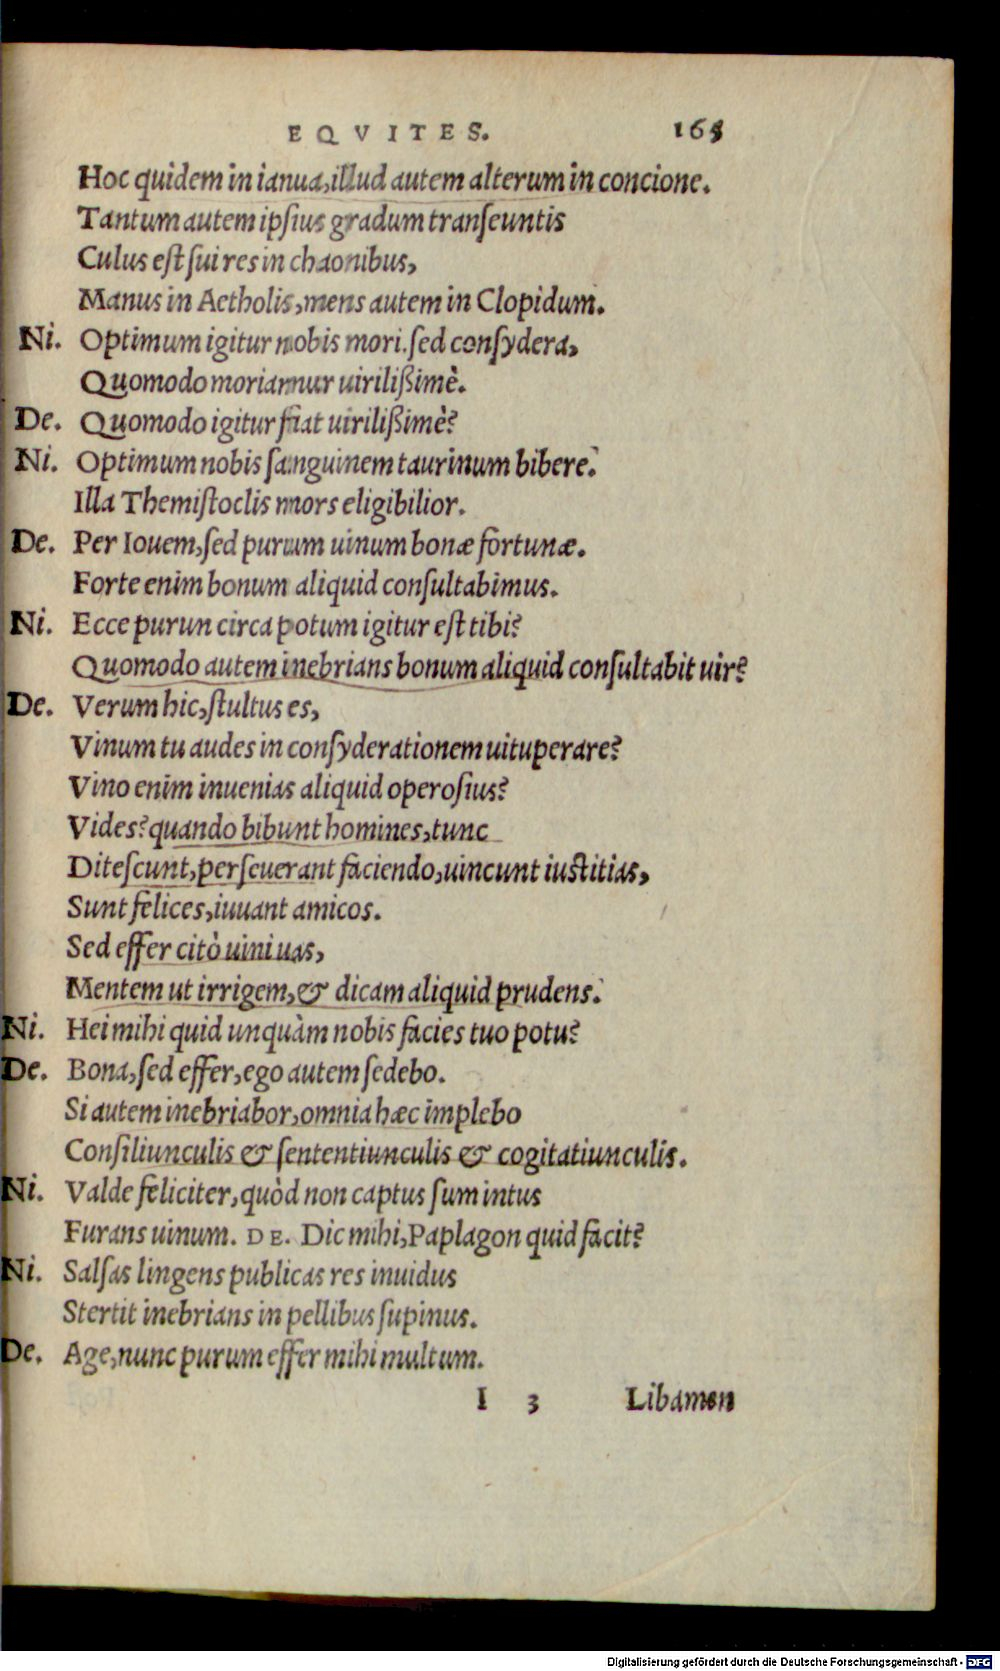 EQVITES. 165
Hoc quidem in ianua, illud autem alterum in concione.
Tantum autem ipſius gradum tranſeuntis
Culus eſt ſui res in chaonibus,
Manus in Aetholis, mens autem in Clopidum.
Ni. Optimum igitur nobis mori. ſed conſydera,
Quomodo moriamur uirilißimè.
De. Quomodo igitur fiat uirilißimè?
Ni. Optimum nobis ſanguinem taurinum bibere.
Illa Themiſtoclis mors eligibilior.
De. Per Iouem, ſed purum uinum bonæ fortunæ.
Forte enim bonum aliquid conſultabimus.
Ni. Ecce purun circa potum igitur eſt tibi?
Quomodo autem inebrians bonum aliquid conſultabit uir?
De. Verum hic, ſtultus es,
Vinum tu audes in conſyderationem uituperare?
Vino enim inuenias aliquid operoſius?
Vides? quando bibunt homines, tunc
Diteſcunt, perſeuerant faciendo, uincunt iuſtitias,
Sunt felices, iuuant amicos.
Sed effer citò uini uas,
Mentem ut irrigem, & dicam aliquid prudens.
Ni. Hei mihi quid unquàm nobis facies tuo potu?
De. Bona, ſed effer, ego autem ſedebo.
Si autem inebriabor, omnia hæc implebo
Conſiliunculis & ſententiunculis & cogitatiunculis.
Ni. Valde feliciter, quòd non captus ſum intus
Furans uinum. DE. Dic mihi, Paplagon quid facit?
Ni. Salſas lingens publicas res inuidus
Stertit inebrians in pellibus ſupinus.
De. Age, nunc purum effer mihi multum.
I 3 Libamen
Digitalisierung gefördert durch die Deutsche Forschungsgemeinschaft - DFG